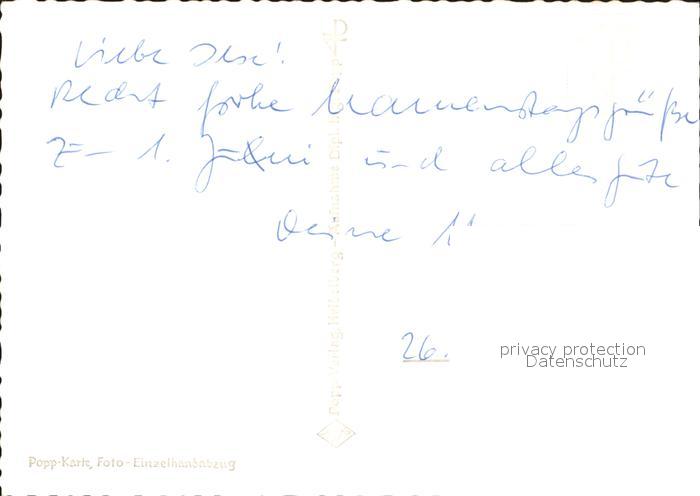 Liebe Ilse!
Recht frohe Namenstagsgrüße
zum 1. Juni und alles Gute
Deine
26.
privacy protection
Datenschutz
Popp-Verlag, Heidelberg - Aufnahme Dipl.
Popp-Karte, Foto-Einzelhandabzug